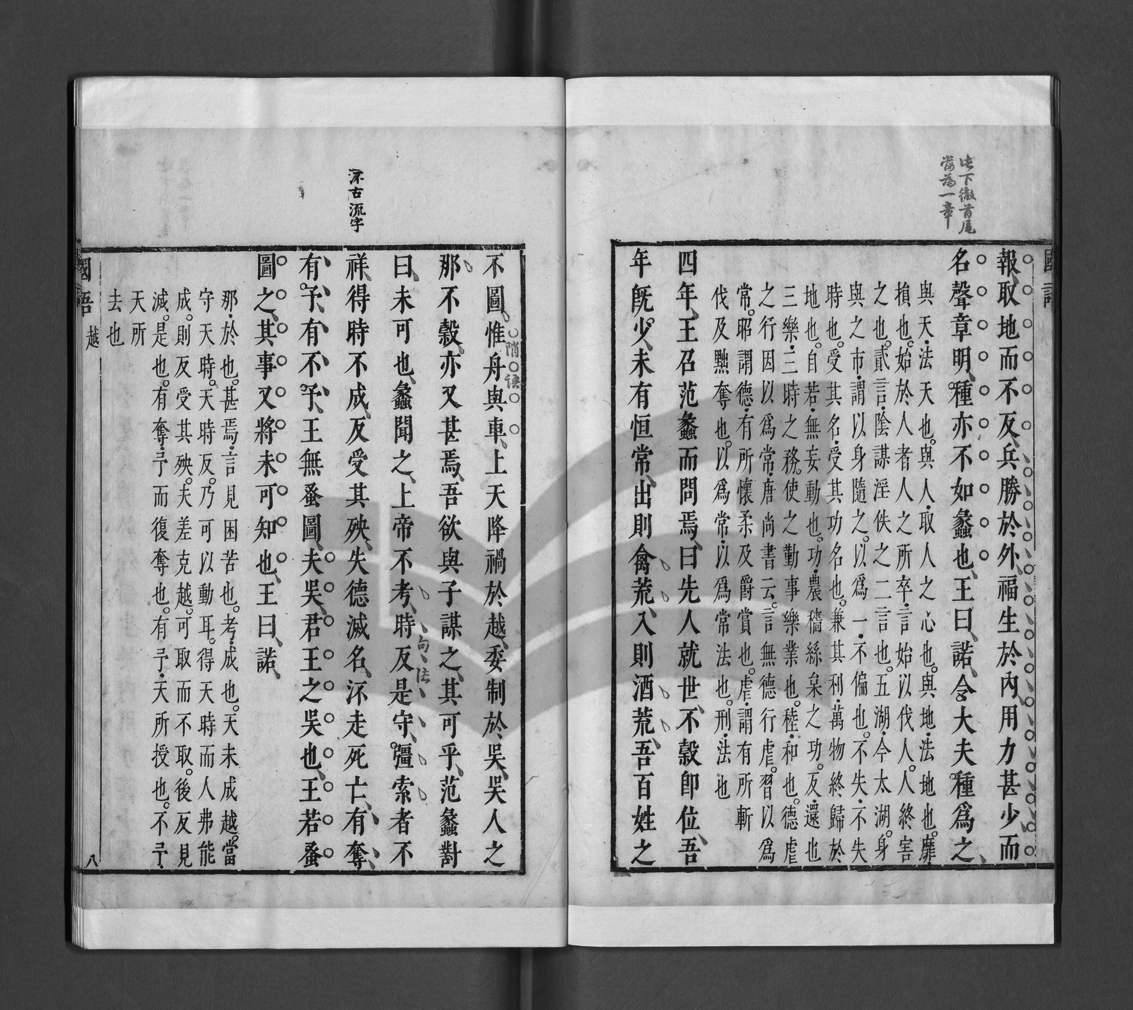 此下徹首尾
當為一章
國語
報、取地而不反、兵勝於外、福生於內用力甚少而
名聲章明、種亦不如蠡也、王曰、諾、令大夫種爲之、
與天、法天也。與人、取人之心也。與地、法地也。靡、
損也。始於人者人之所卒、言始以伐人。人終害
之也。貳言、陰謀淫佚之二言也。五湖、今太湖。身
與之市、謂以身隨之。以爲一、不偏也。不失、不失
時也。受其名、受其功名也。兼其利、萬物終歸於
地也。自若、無妄動也。功、農穡絲枲之功。反、還也
三樂、三時之務。使之勤事樂業也。稑、和也。德虐
之行因以爲常、唐尚書云。言無德行虐。習以爲
常。昭謂德、有所懷柔及爵賞也。虐、謂有所斬
伐及黜奪也。以爲常、以爲常法也。刑、法也
四年、王召范蠡而問焉、曰先人就世、不穀卽位、吾
年旣少、未有恒常、出則禽荒、入則酒荒、吾百姓之
㳅古流字
不圖、惟舟與車、上天降禍於越、委制於吳、吳人之
那不穀、亦又甚焉、吾欲與子謀之、其可乎、范蠡對
曰、未可也、蠡聞之、上帝不考、時反是守、彊索者不
句法
祥、得時不成、反受其殃、失德滅名、㳅走死亡、有奪、
有予、有不予、王無蚤圖、夫吳、君王之吳也、王若蚤
圖之、其事又將未可知也、王曰、諾、
那、於也。甚焉、言見困苦也。考、成也。天未成越。當
守天時。天時反。乃可以動耳。得天時而人弗能
成。則反受其殃。夫差克越。可取而不取。後反見
滅。是也。有奪、予而復奪也。有予、天所授也。不予、
天所
去也
國語
越
八